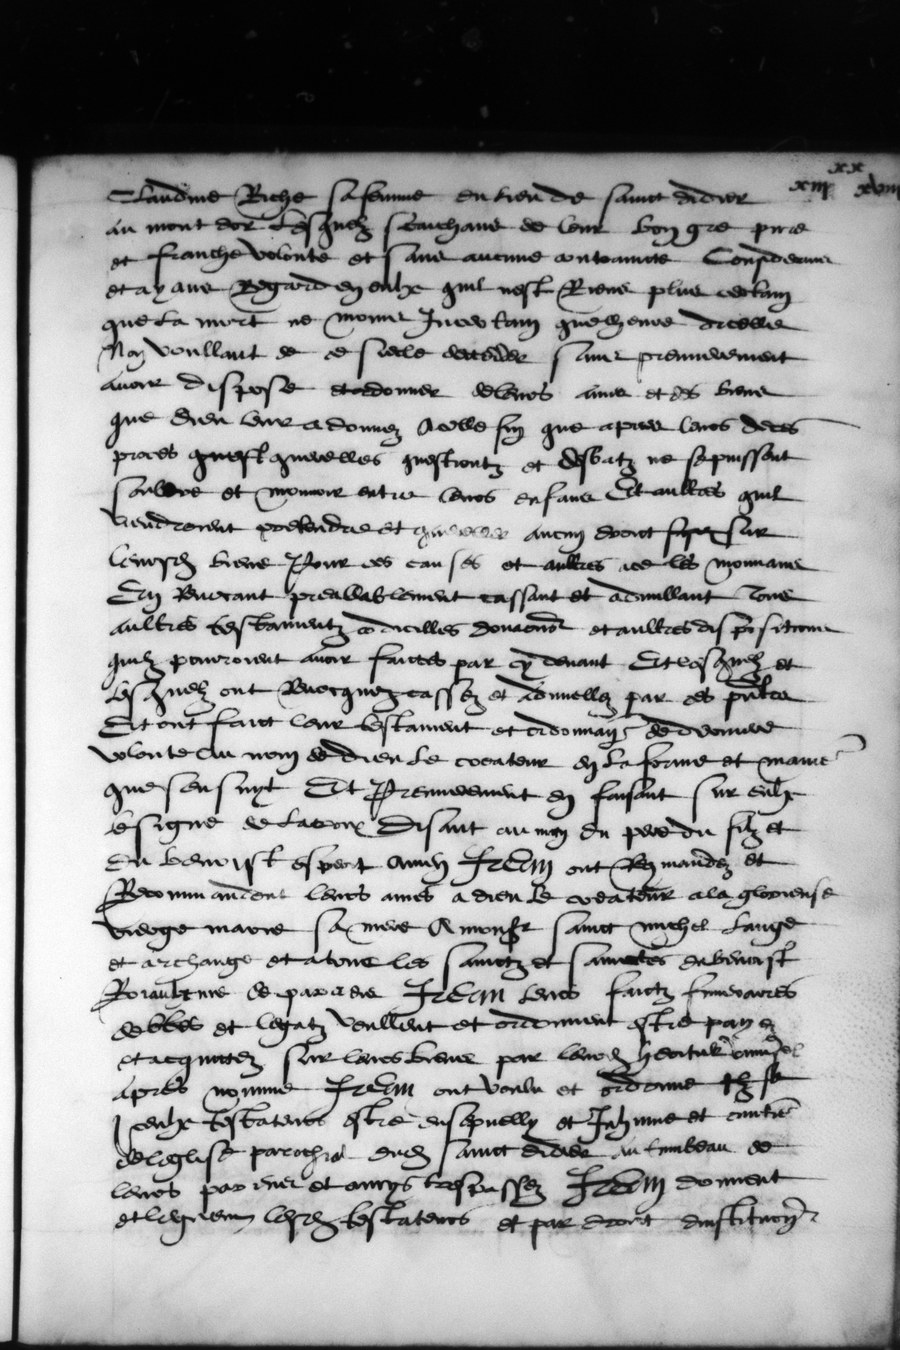 xx
xiii xviii
Claudine Riche sa femme du lieu de sainct didier
au mont dor Lesquelz sachans de leur bon gre pure
et franche volonte et sans aucune contraincte Considerans
et ayans Regard en eulx quil nest Riens plus certain
que La mort ne moins Incertain que lheure dicelle
Non voullant de ce siecle deceder sans premierement
avoir dispose et ordonner de leurs ames et des biens
que dieu leur a donnez A celle fin que apres leurs deces
proces querelles questions et debatz ne se puissent
souldre et mouvoir entre leurs enfans Et aultres quil
vendroient pretendre et quereller aucun droict sur
leursd biens Pour ces causes et aultres ace les mouvans
En Revocant prealablement cassant et adnullant Tous
aultres testamentz codicilles donations et aultres dispositions
quilz pourroient avoir faictes par cy devant Et lesquelz et
lesquelz ont Revocquez cassez et adnullez par ces pntes
Et ont faict leur testament et ordonnance de derniere
volonte Au nom de dieu Le createur en La forme et maniere
que sensuyt Et Premierement en faisant sur eulx
le signe de La croix Disant au nom du pere du filz et
du benoist esperit amen Item ont Recomandez et
Recommandent leurs ames a dieu le createur a la glorieuse
vierge marie sa mere A monsr sainct michel Lange
et archange et a tous les sainctz et sainctes du benoist
Roiaulme de paradis Item leurs faictz funeraires
debtes et legatz veullent et ordonnent estre payez
et acquictez sur leurs biens par leurs heritiers
apres nommes Item ont voulu et ordonne
eulx testateurs estre ensepvelly et Inhumes
de leglise parochial dud sainct didier au tumbeau de
leurs parens et amys trespassez Item donnent
et leguent lesd testateurs et par droict dinstitution